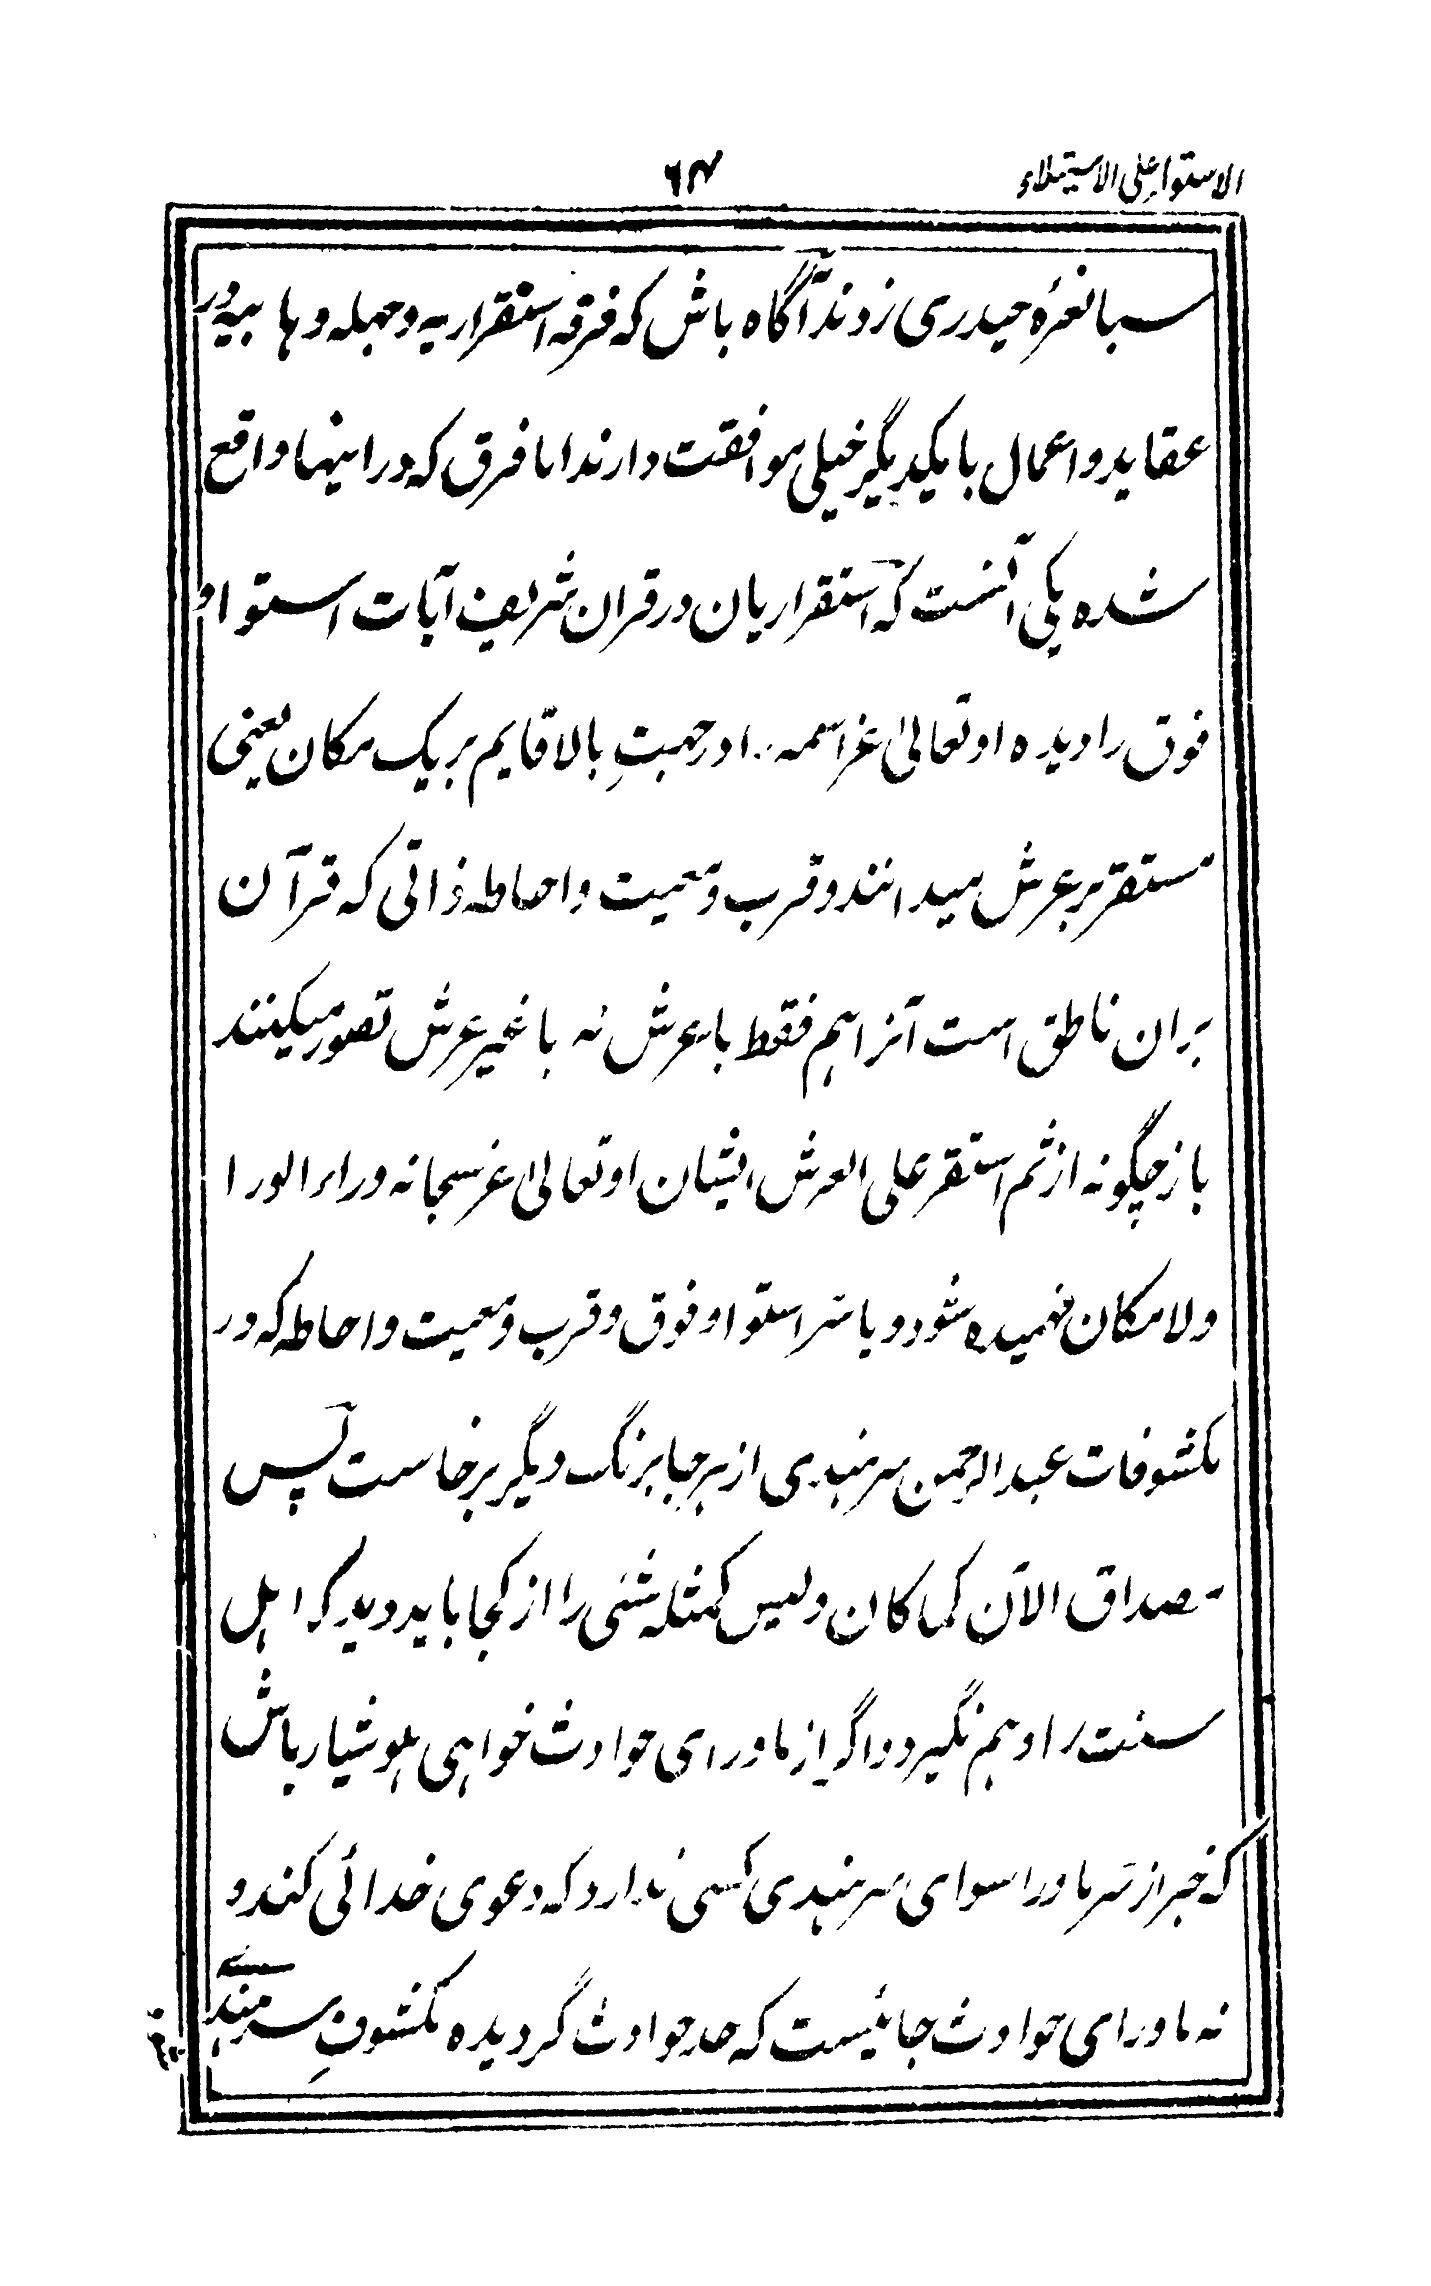 الاستواء علی الاستیلاء
۶۴
سبا نعرهٔ حیدری زدند آگاه باش که فرقه استقراریه و جهله وهابیه در
عقاید و اعمال بایکدیگر خیلی موافقت دارند اما فرق که در اینها واقع
شده یکی آنست که استقراریان در قران شریف آیات استوا و
فوق را دیده او تعالیٰ عز اسمه را در جهتِ بالا قایم بر یک مکان یعنی
مستقر بر عرش میدانند و قرب و معیت و احاطه ذاتی که قرآن
بران ناطق است آنرا هم فقط با عرش نه با غیر عرش تصور میکنند
باز چگونه از ثم استقر علی العرش ایشان او تعالیٰ عز سبحانه وراء الورا
و لا مکان فهمیده شود و یا سر استوا و فوق و قرب و معیت و احاطه که در
مکشوفات عبد الرحمن سرهندی از هر جا برنگ دیگر برخاست پس
مصداق الآن کما کان و لیس کمثله شئی را از کجا باید دید که اهل
سنت را وهم نگیرد و اگر از ماورای حوادث خواهی هوشیار باش
که خبر از سر ماورا سوای سرهندی کسی ندارد که دعوی خدائی کند و
نه ماورای حوادث جائیست که حد حوادث گردیده مکشوفِ سرهندی